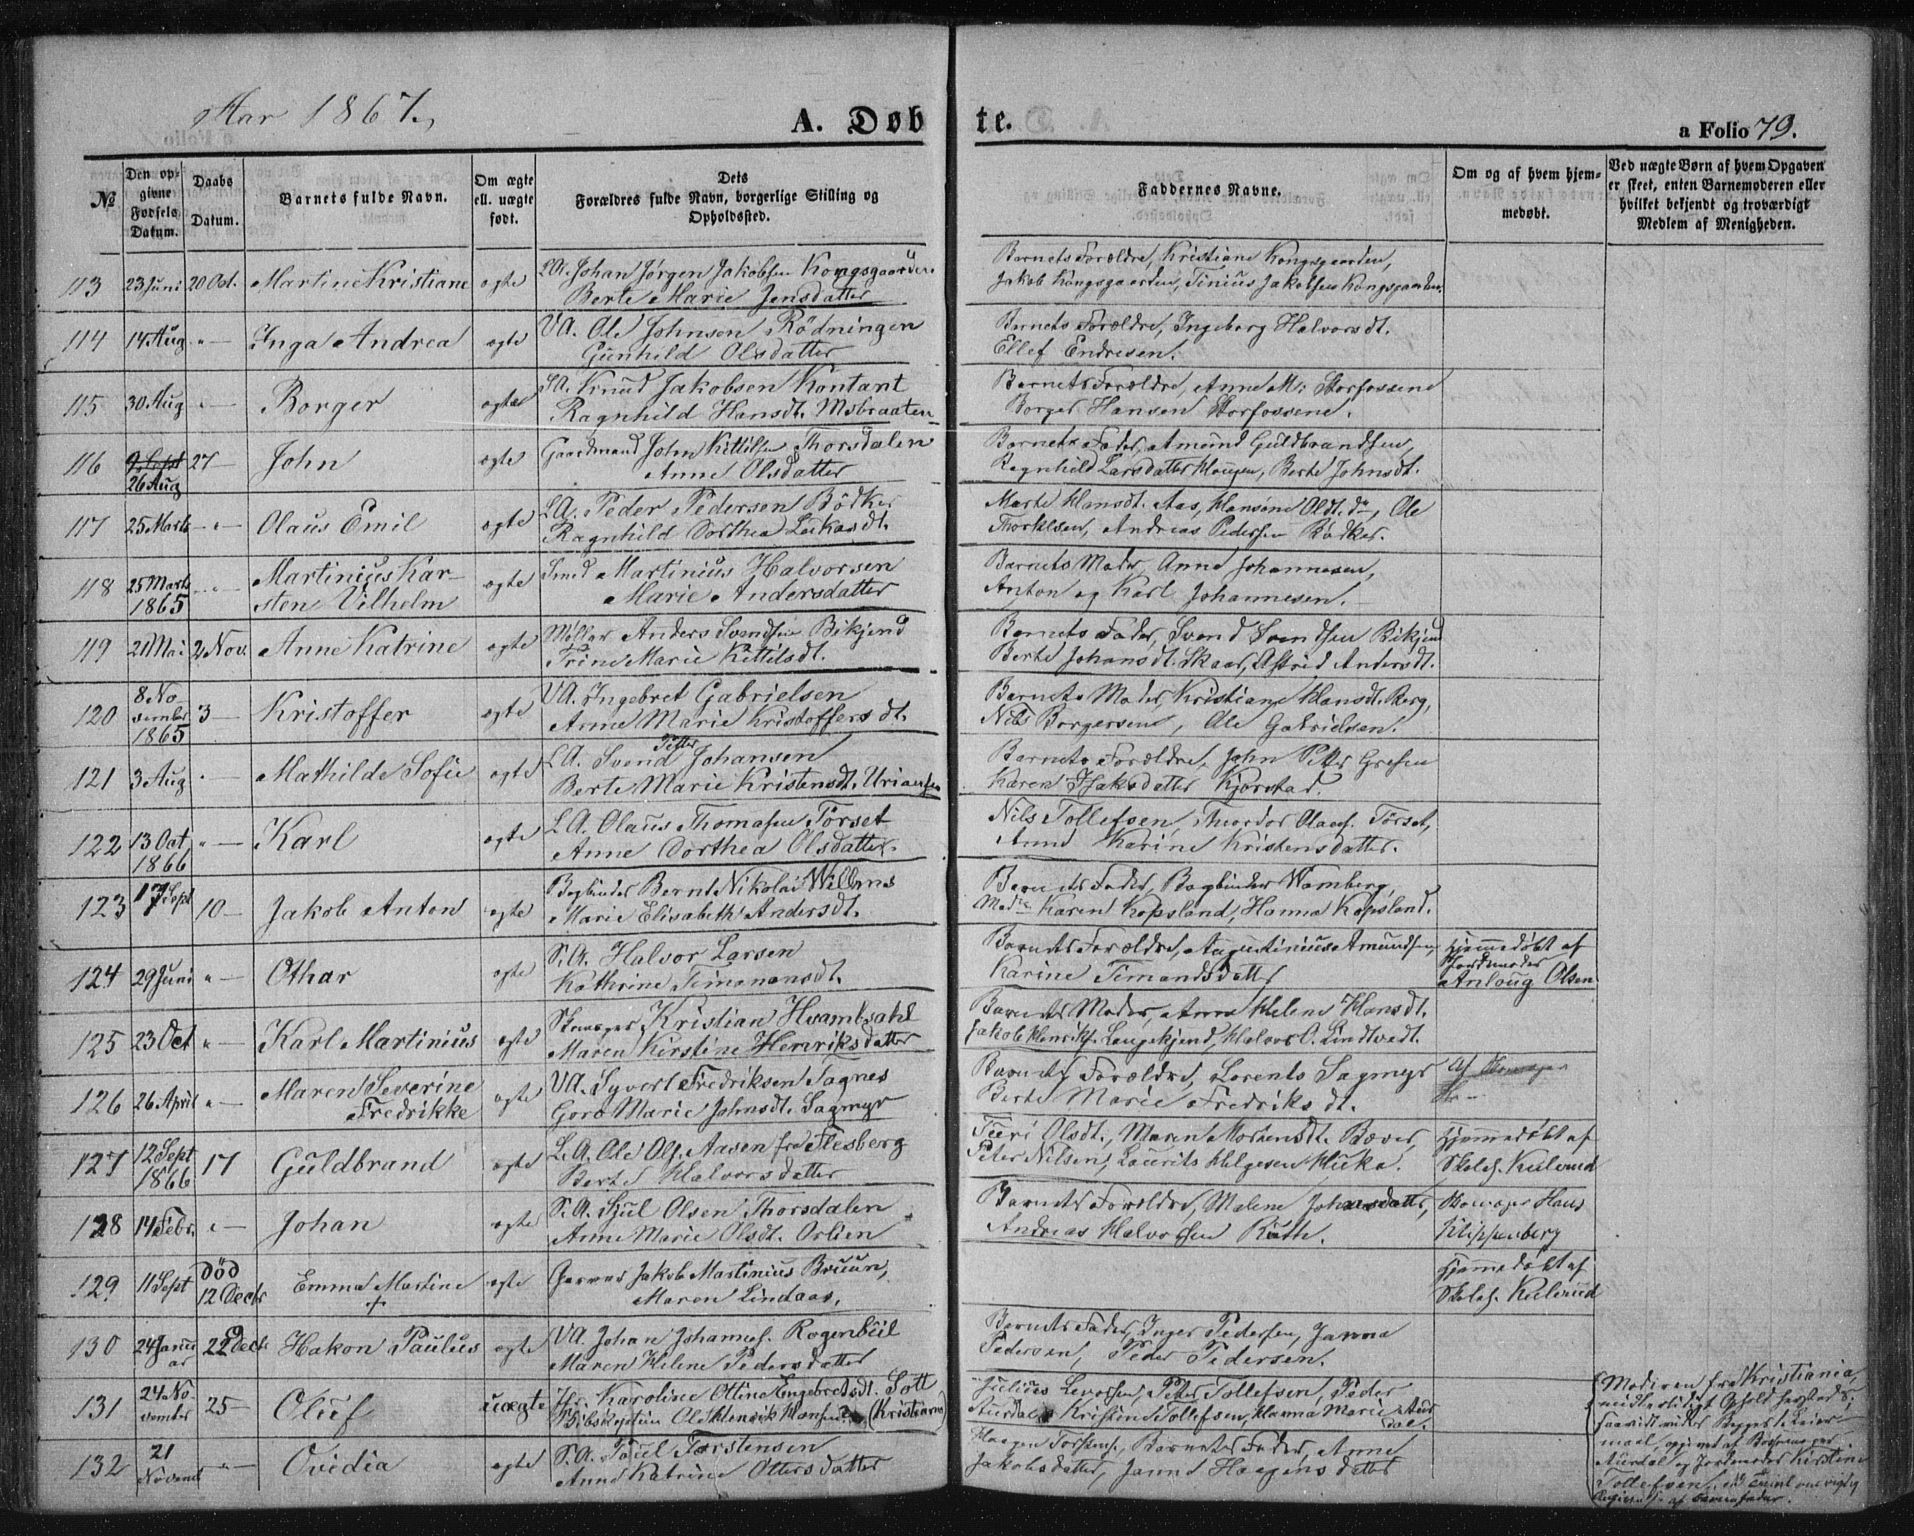 Aar 1867.
A. Døb te.
a Folio 79.
№
Den op-
givne
Fødsels
Datum.
Daabs
Datum.
Barnets fulde Navn.
Om ægte
ell. uægte
født.
Dets
Forældres fulde Navn, borgerlige Stilling og
Opholdssted.
Faddernes Navne.
Om og af hvem hjem-
medøbt.
Ved uægte Børn af hvem Opgaven
er skeet, enten Barnemoderen eller
hvilket bekjendt og troværdigt
Medlem af Menigheden.
113 23 Juni 20 Oct. Martine Kristiane ægte LA. Johan Jørgen Jakobsen Kongsgaarden
Berte Marie Jensdatter
Barnets Forældre, Kristiane Kongsgaarden,
Jakob Kongsgaarden, Tinius Jakobsen Kongsgaarden
114 14 Aug " — Inga Andrea ægte VA. Ole Johnsen Rödningen
Gunhild Olsdatter
Barnets Forældre, Ingeborg Halvorsdt.
Ellef Endresen.
115 30 Aug " — Borger ægte SA. Knud Jakobsen Kontant
Ragnhild Hansdt. Mobraaten
Barnets Forældre, Anne M: Storfossene
Borger Hansen Storfossene.
116 9 Sept 26 Aug 27 — John ægte Gaardmand John Kittilsen Thorsdalen
Anne Olsdatter
Barnets Fader, Amund Guldbrandsen,
Ragnhild Larsdatter Haugen, Berte Johnsdt.
117 25 Marts — " — Olaus Emil ægte LA. Peder Pedersen Bödker
Ragnhild Dorthea Lukasdt.
Marte Hansdt. Aas, Hansine Oldt. do, Ole
Thorklsen, Andreas Pedersen Bödker.
118 25 Marts 1865 — " — Martinius Kar-
sten Vilhelm ægte Smed Martinius Halvorsen
Marie Andersdatter
Barnets Moder, Anne Johannesen,
Anton og Karl Johannesen.
119 21 Mai 2 Nov. Anne Katrine ægte Möller Anders Svendsen Bikjend
Trine Marie Kittilsdt.
Barnets Fader, Svend Svendsen Bikjend
Berte Johansdt. Skaar, Astrid Andersdt.
120 8 No
vember
1865 3 — Kristoffer ægte VA. Ingebret Gabrielsen
Anne Marie Kristoffersdt.
Barnets Moder, Kristiane Hansdt. Berg,
Nils Borgersen, Ole Gabrielsen.
121 3 Aug " — Mathilde Sofie ægte LA. Svend Petter Johansen
Berte Marie Kristensdt. Uriansen
Barnets Forældre, John Petter Grefsen
Karen Isaksdatter Kjörstad.
122 13 Oct 1866 " — Karl ægte LA. Olaus Thomasen Törset
Anne Dorthea Olsdatter
Nils Tollefsen, Theodor Olausf. Törset,
Anne Karine Kristensdatter.
123 17 Sept 10 — Jakob Anton ægte Bogbinder Bernt Nikolai Willoms
Marie Elisabeth Andersdt.
Barnets Fader, Bogbinder Womberg,
Madme Karen Kopsland, Hanna Kopsland.
124 29 Juni " — Othar ægte S.A. Halvor Larsen
Kathrine Timanansdt.
Barnets Forældre, Augustinius Amundsen,
Karine Timandsdatter
Hjemmedöbt af
Jordmoder
Anlaug Olsen
125 23 Oct " — Karl Martinius ægte Skomager Kristian Hvambsahl
Maren Kirstine Henriksdatter
Barnets Moder, Anne Helene Hansdt.
Jakob Henrikf. Langekjend, Halvor O. Lindtvedt.
126 26 April " — Maren Severine
Fredrikke ægte VA. Syvert Fredriksen Sagnes
Goro Marie Johnsdt. Sagmyr
Barnets Forældre, Lorents Sagmyr
Berte Marie Fredriksdt.
127 12 Sept 1866 17 Guldbrand ægte L.A. Ole Olf. Aasen fra Flesberg
Berte Halvorsdatter
Turi Olsdt., Maren Mortensdt. Bæver,
Peter Nilsen, Laurits Helgesen Huka.
Hjemmedöbt af
Skolef. Kulerud
128 14 Febr. " — Johan ægte S.A. Hjul Olsen Thorsdalen
Anne Marie Olsdt. Orlien
Barnets Forældre, Malene Johansdatter,
Andreas Halvorsen Ruth.
Skomager Hans
Klippenberg
129 11 Sept død
12 Decbr Emma Martine
+ ægte Garver Jakob Martinius Bruun,
Maren Lindaas.
Hjemmedöbt af
Skolef. Kulerud
130 24 Janu
ar 22 Decbr Hakon Paulus ægte VA. Johan Johannesf. Rogenbüil
Maren Helene Pedersdatter
Barnets Fader, Inger Pedersen, Janna
Pedersen, Peder Pedersen.
131 24 No
vember 25 — Oluf uægte Karoline Ottine Engebretsdt. Sott
Ole Henrik Hansen (Kristiania)
Julius Levorsen, Peter Tollefsen, Peder
Aurdal, Kristine Tollefsen, Hanna Marie Aur
dal.
Moderen fra Kristiania,
opgivet af
Aurdal og Jordmoder Kirstine
Tollefsen.
af Barnefader.
132 21
Novemb " — Ovidia ægte S.A. Poul Torstensen
Anne Katrine Ottersdatter
Haagen Torstensf., Barnets Fader, Anne
Jakobsdatter, Janne Haagensdatter